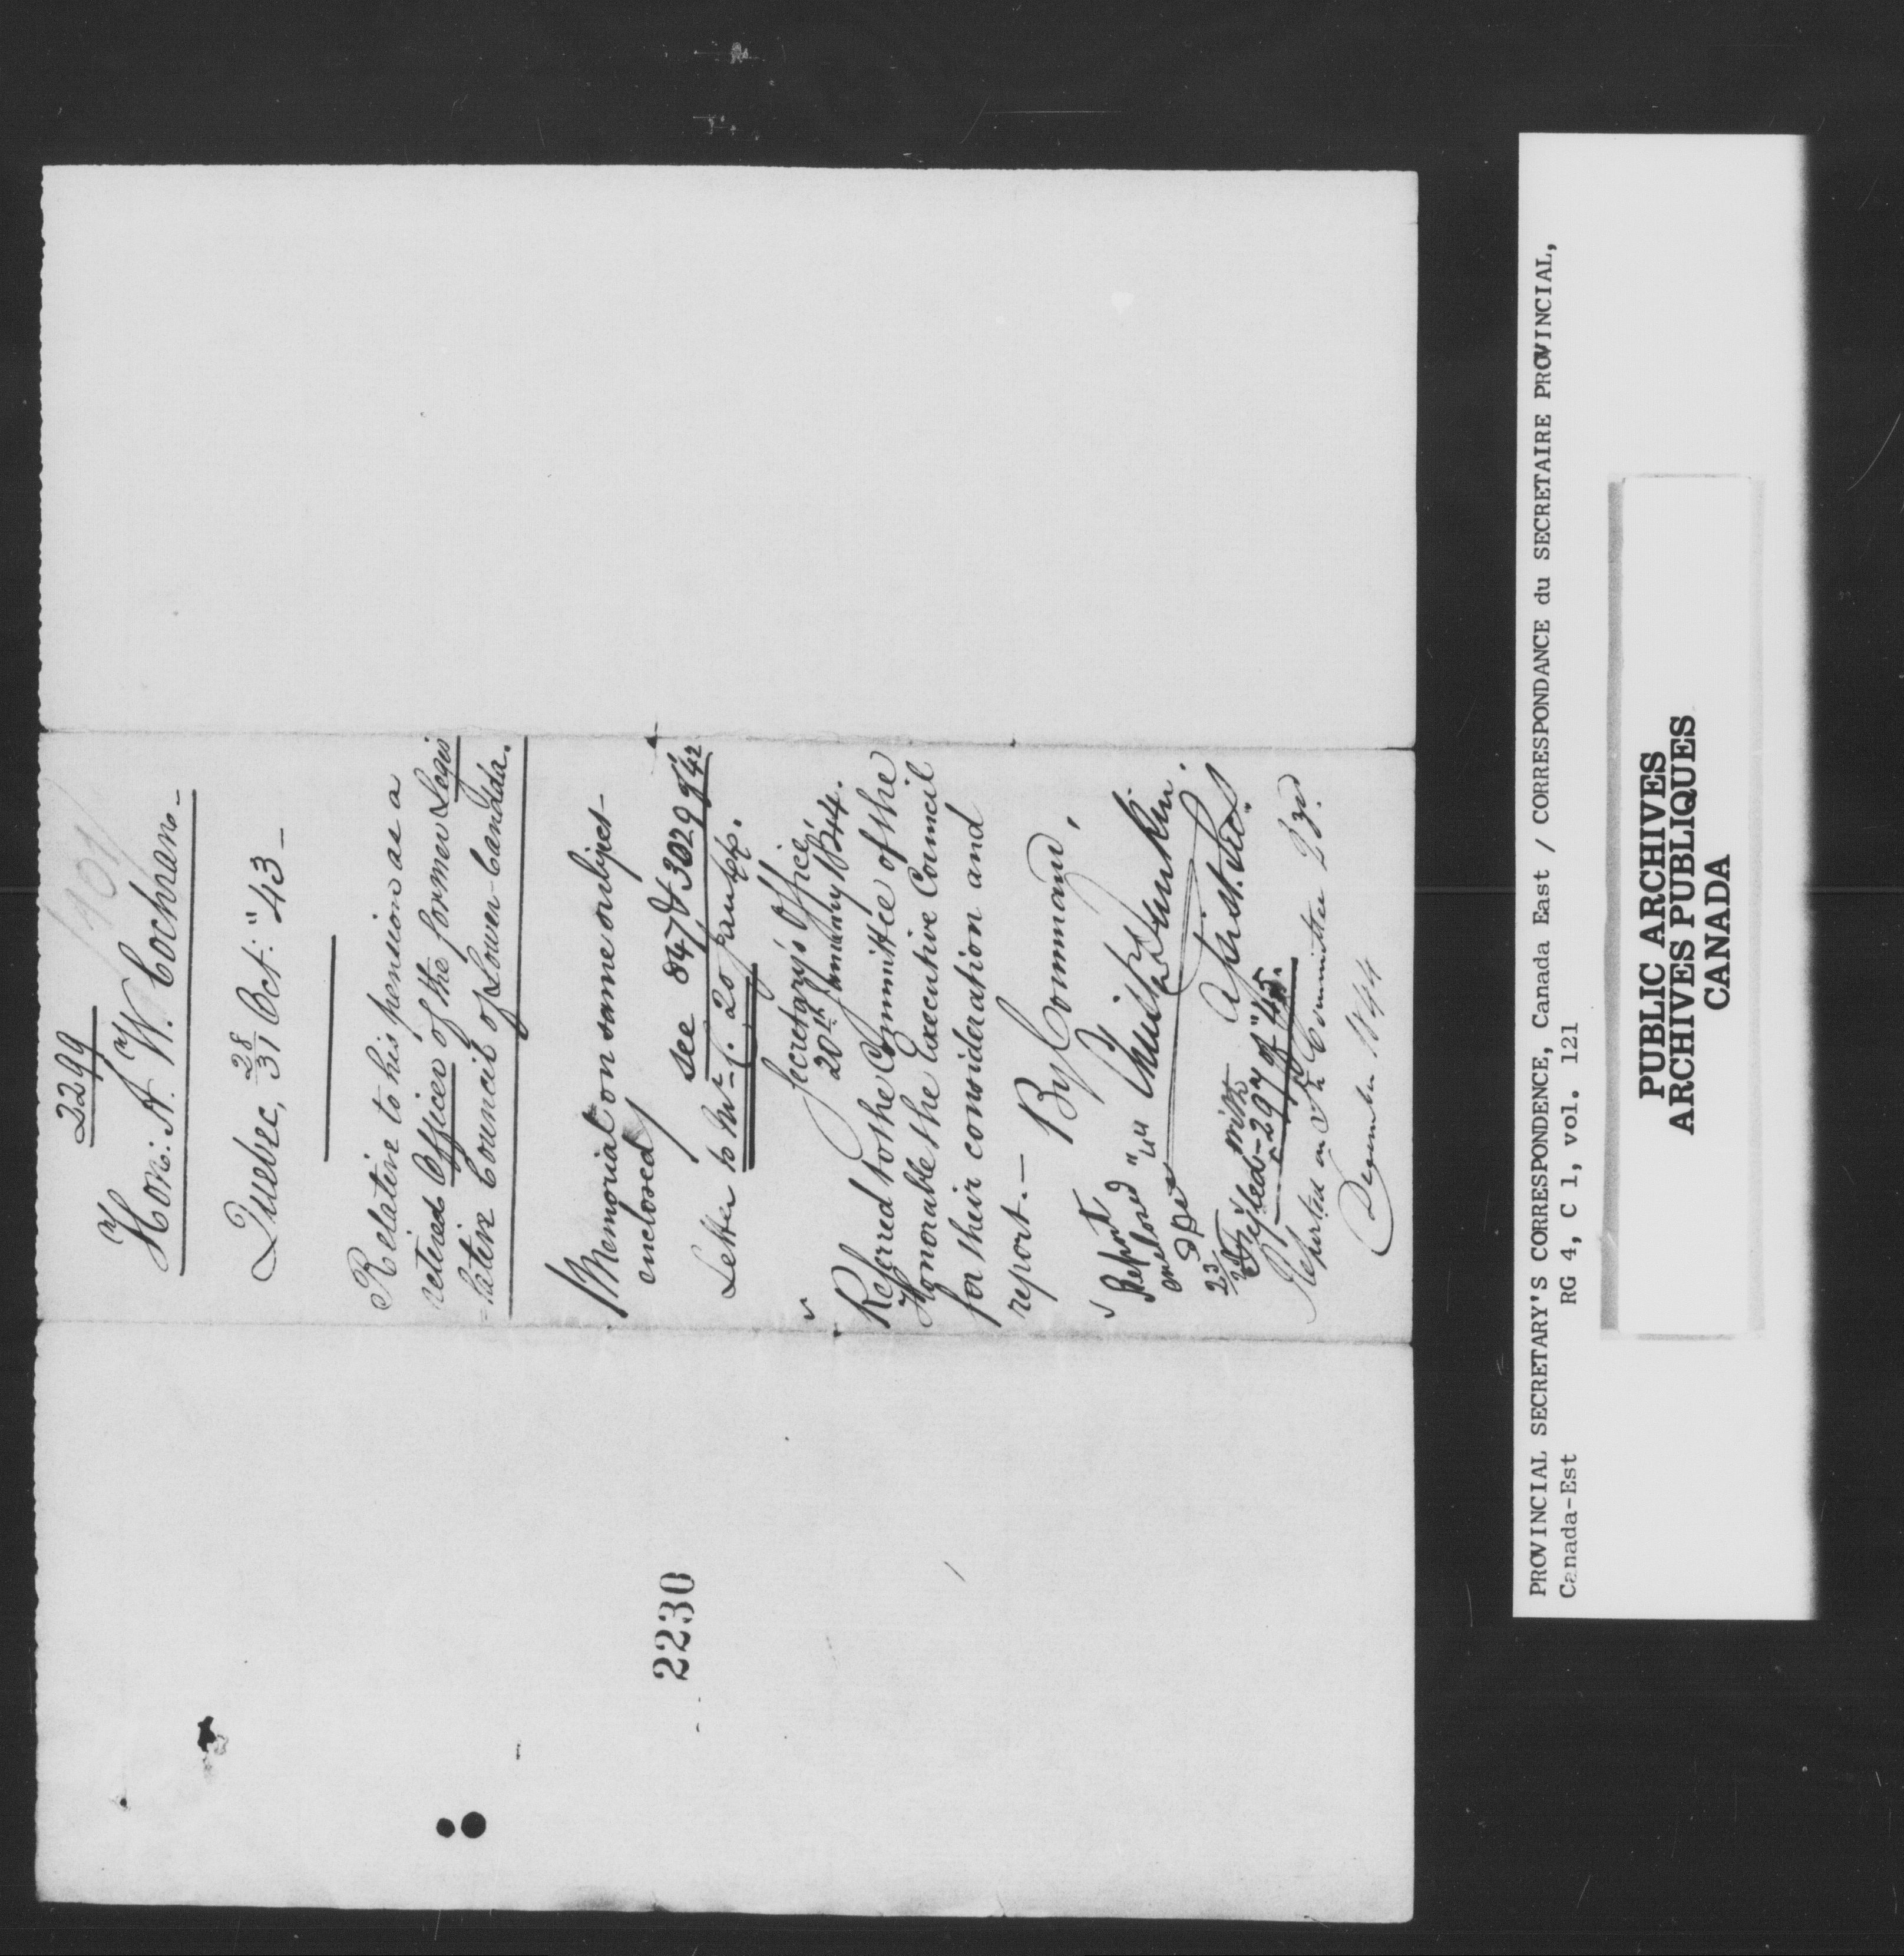 2299
Hon: A. W. Cochran
Quebec, 28/31 Oct: "43
Relative to his pension as a
retired Officer of the former Legis
-lative Council of Lower Canada.
Memorial on same subject
enclosed
see 847 & 3029 of '42
Letter to 20 Jan 44.
Secretary's Office,
20th January 1844.
Referred to the Committee of the
Honorable the Executive Council
for their consideration and
report.—
By Command,
Christ. Dunkin.
Assist. Sec.
Report
enclosed
23
Filed with
297 of "45.
Reported on in Committee 23rd
December 1844
2230
PROVINCIAL SECRETARY'S CORRESPONDENCE, Canada East / CORRESPONDANCE du SECRETAIRE PROVINCIAL,
Canada-Est RG 4, C 1, vol. 121
PUBLIC ARCHIVES
ARCHIVES PUBLIQUES
CANADA